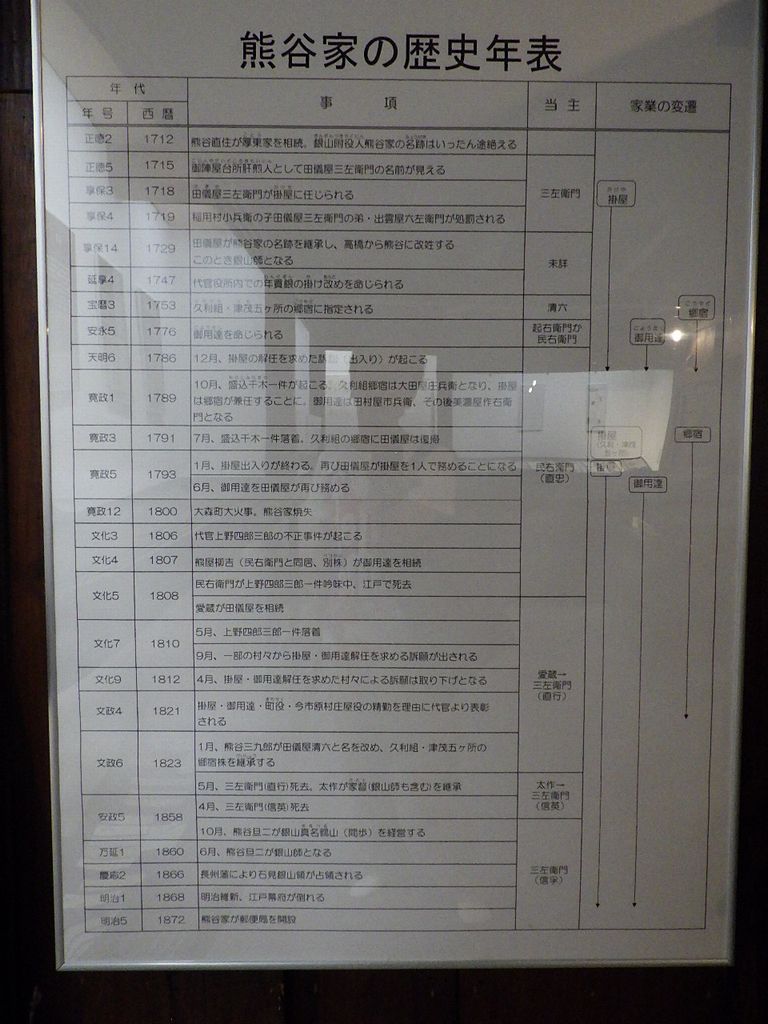 熊谷家の歴史年表
年代 事項 当主 家業の変遷
年号 西暦
正徳2 1712 熊谷直住が厚東家を相続。銀山附役人熊谷家の名跡はいったん途絶える
正徳5 1715 御陣屋台所肝煎人として田儀屋三左衛門の名前が見える
享保3 1718 田儀屋三左衛門が掛屋に任じられる
三左衛門
掛屋
享保4 1719 稲用村小兵衛の子田儀屋三左衛門の弟・出雲屋六左衛門が処罰される
享保14 1729 田儀屋が熊谷家の名跡を継承し、高橋から熊谷に改姓する
このとき銀山師となる
未詳
延享4 1747 代官役所内での年貢銀の掛け改めを命じられる
宝暦3 1753 久利組・津茂五ヶ所の郷宿に指定される
清六
郷宿
安永5 1776 御用達を命じられる
起右衛門か
民右衛門
御用達
天明6 1786 12月、掛屋の解任を求めた訴訟(出入り)が起こる
寛政1 1789 10月、盛込千木一件が起こる。久利組郷宿は大田屋庄兵衛となり、掛屋
は郷宿が兼任することに。御用達は田村屋市兵衛、その後美濃屋作右衛
門となる
寛政3 1791 7月、盛込千木一件落着。久利組の郷宿に田儀屋は復帰
掛屋
(久利・津茂
五ヶ所)
郷宿
寛政5 1793 1月、掛屋出入りが終わる。再び田儀屋が掛屋を1人で務めることになる
6月、御用達を田儀屋が再び務める
民右衛門
(直忠)
掛屋
御用達
寛政12 1800 大森町大火事。熊谷家焼失
文化3 1806 代官上野四郎三郎の不正事件が起こる
文化4 1807 熊屋柳吉(民右衛門と同居、別株)が御用達を相続
文化5 1808 民右衛門が上野四郎三郎一件吟味中、江戸で死去
愛蔵が田儀屋を相続
文化7 1810 5月、上野四郎三郎一件落着
9月、一部の村々から掛屋・御用達解任を求める訴願が出される
文化9 1812 4月、掛屋・御用達解任を求めた村々による訴願は取り下げとなる
愛蔵→
三左衛門
(直行)
文政4 1821 掛屋・御用達・町役・今市原村庄屋役の精勤を理由に代官より表彰
される
文政6 1823 1月、熊谷三九郎が田儀屋清六と名を改め、久利組・津茂五ヶ所の
郷宿株を継承する
5月、三左衛門(直行)死去。太作が家督(銀山師も含む)を継承
太作→
三左衛門
(信英)
安政5 1858 4月、三左衛門(信英)死去
10月、熊谷旦二が銀山真名鶴山(間歩)を経営する
万延1 1860 6月、熊谷旦二が銀山師となる
慶応2 1866 長州藩により石見銀山領が占領される
三左衛門
明治1 1868 明治維新、江戸幕府が倒れる
明治5 1872 熊谷家が郵便局を開設